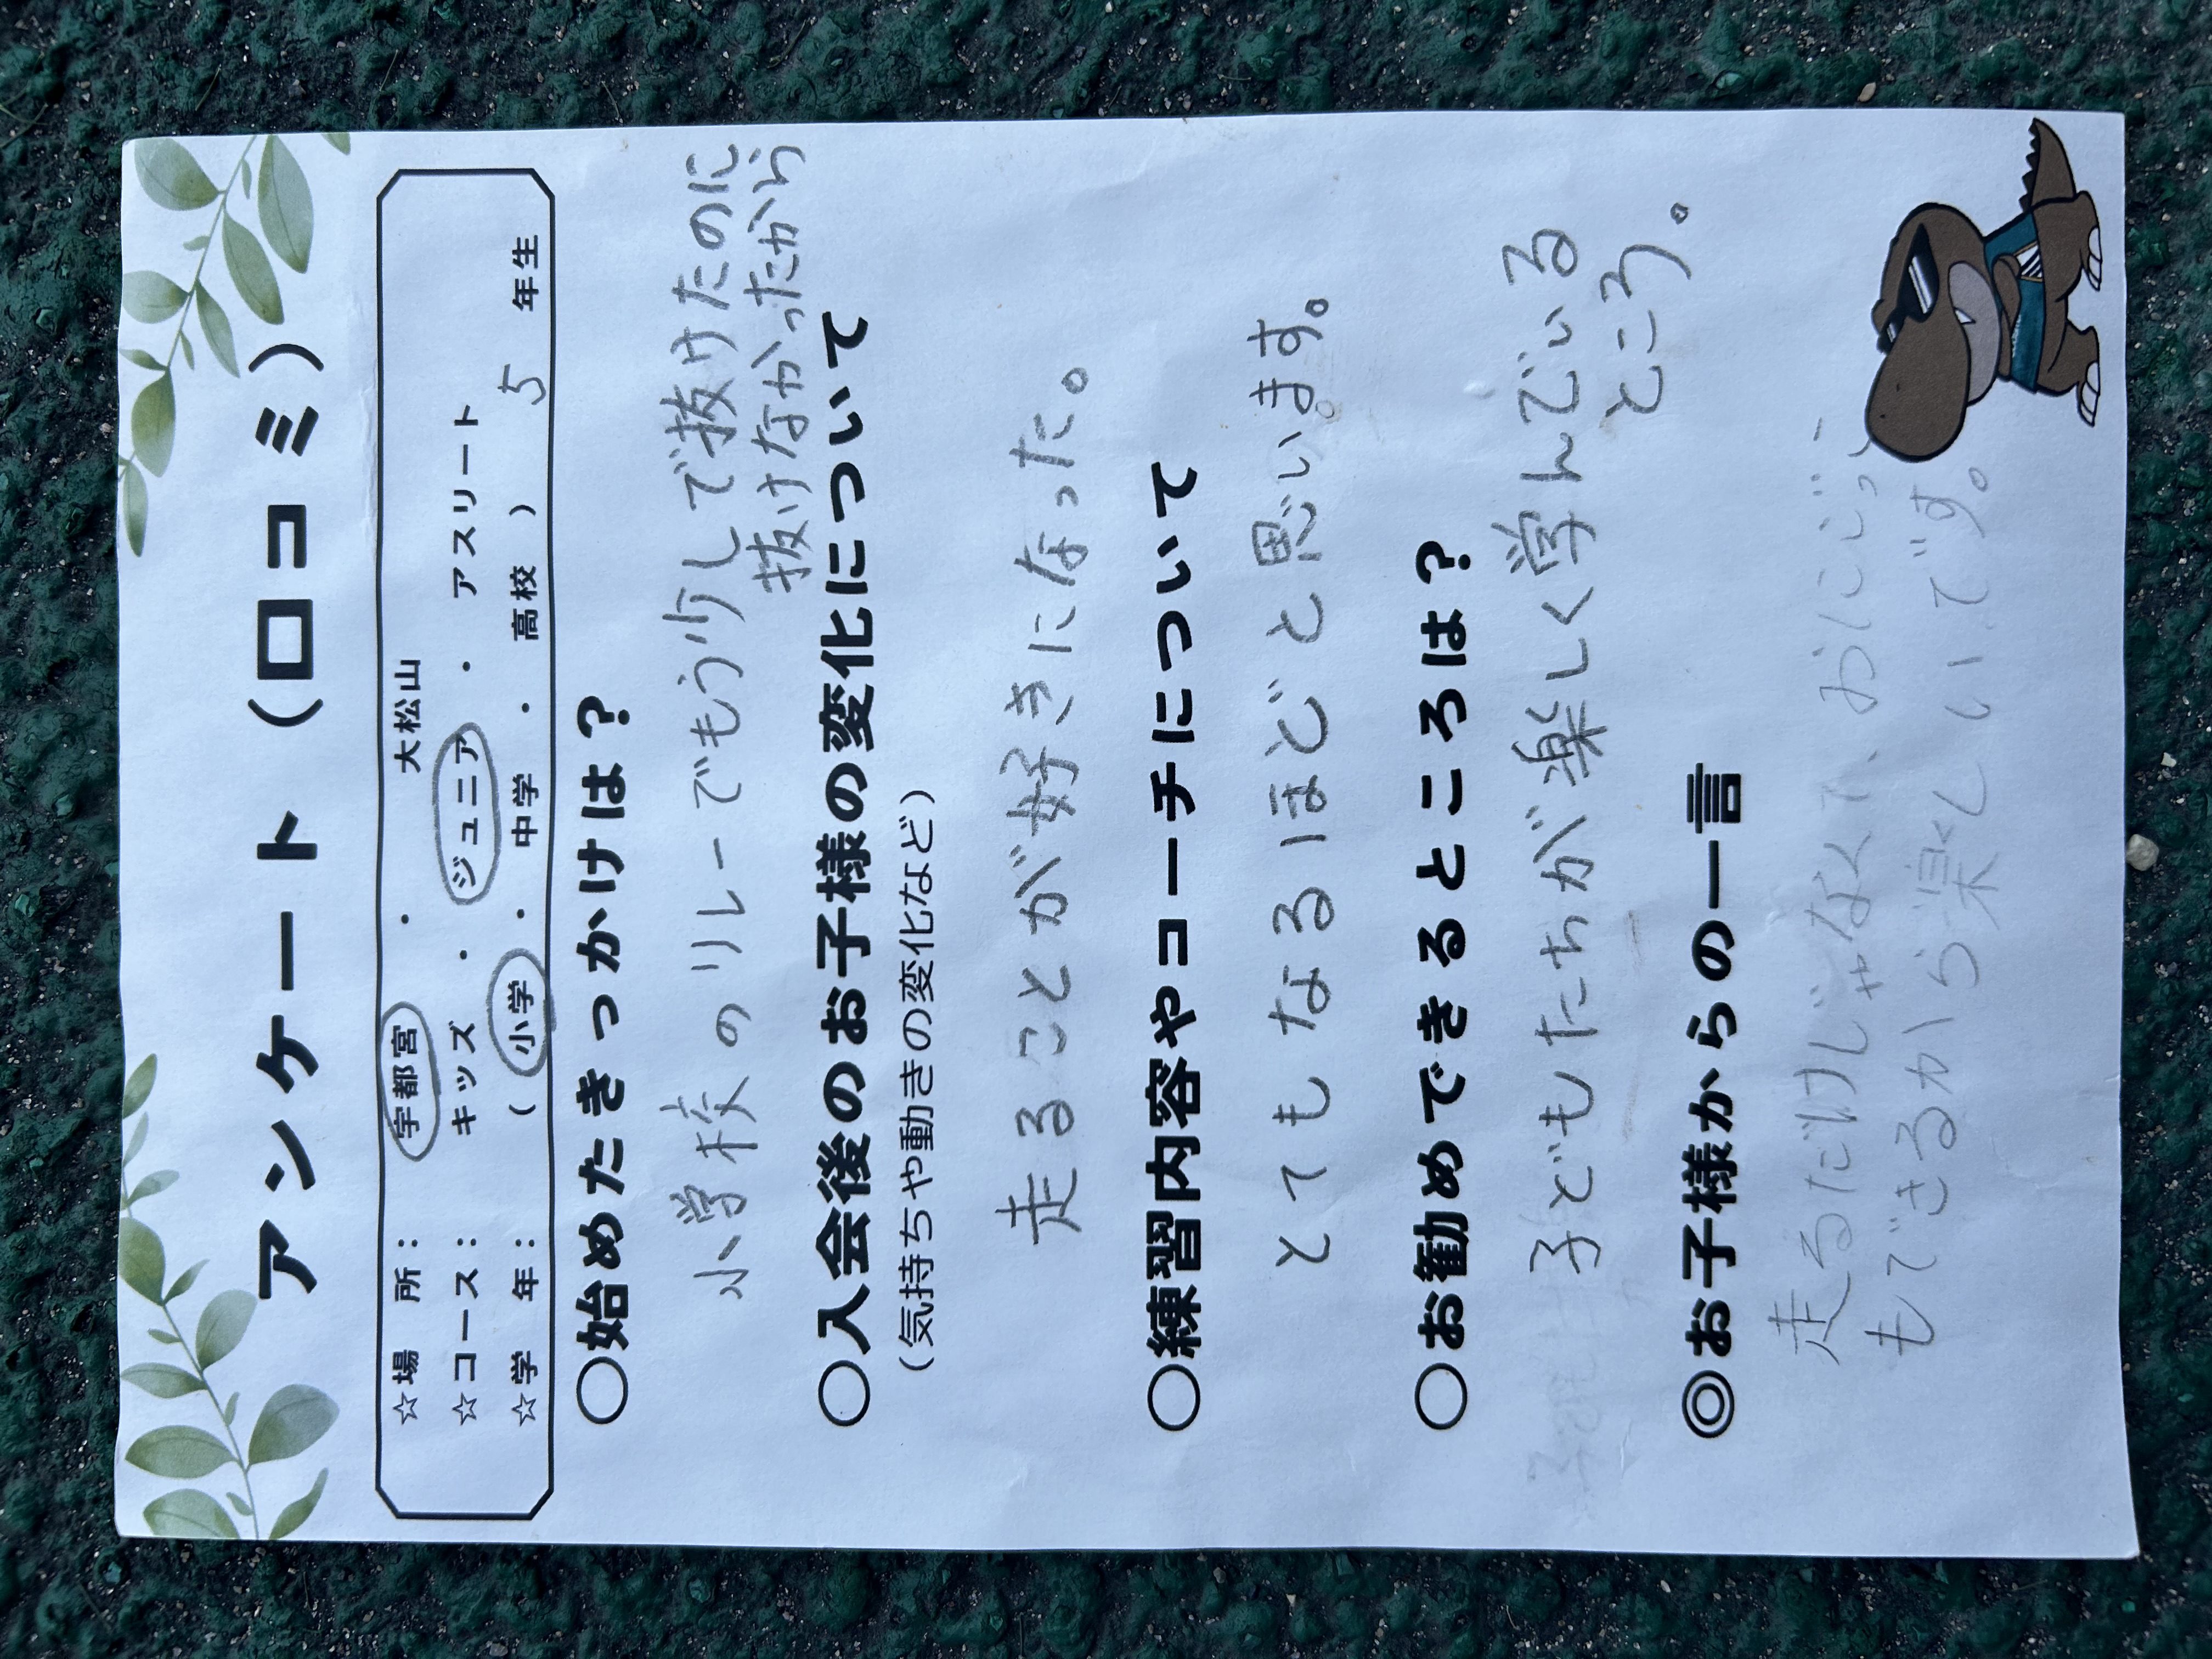 アンケート（口コミ）
☆場 所： 宇都宮 ・ 大松山
☆コース： キッズ ・ ジュニア ・ アスリート
☆学 年：（ 小学 ・ 中学 ・ 高校 ） 5 年生
○始めたきっかけは？
小学校のリレーでもう少しで抜けたのに
抜けなかったから
○入会後のお子様の変化について
（気持ちや動きの変化など）
走ることが好きになった。
○練習内容やコーチについて
とてもなるほどと思います。
○お勧めできるところは？
子どもたちが楽しく学んでいる
ところ。
◎お子様からの一言
走るだけじゃなくて、おにごっこ
もできるから楽しいです。